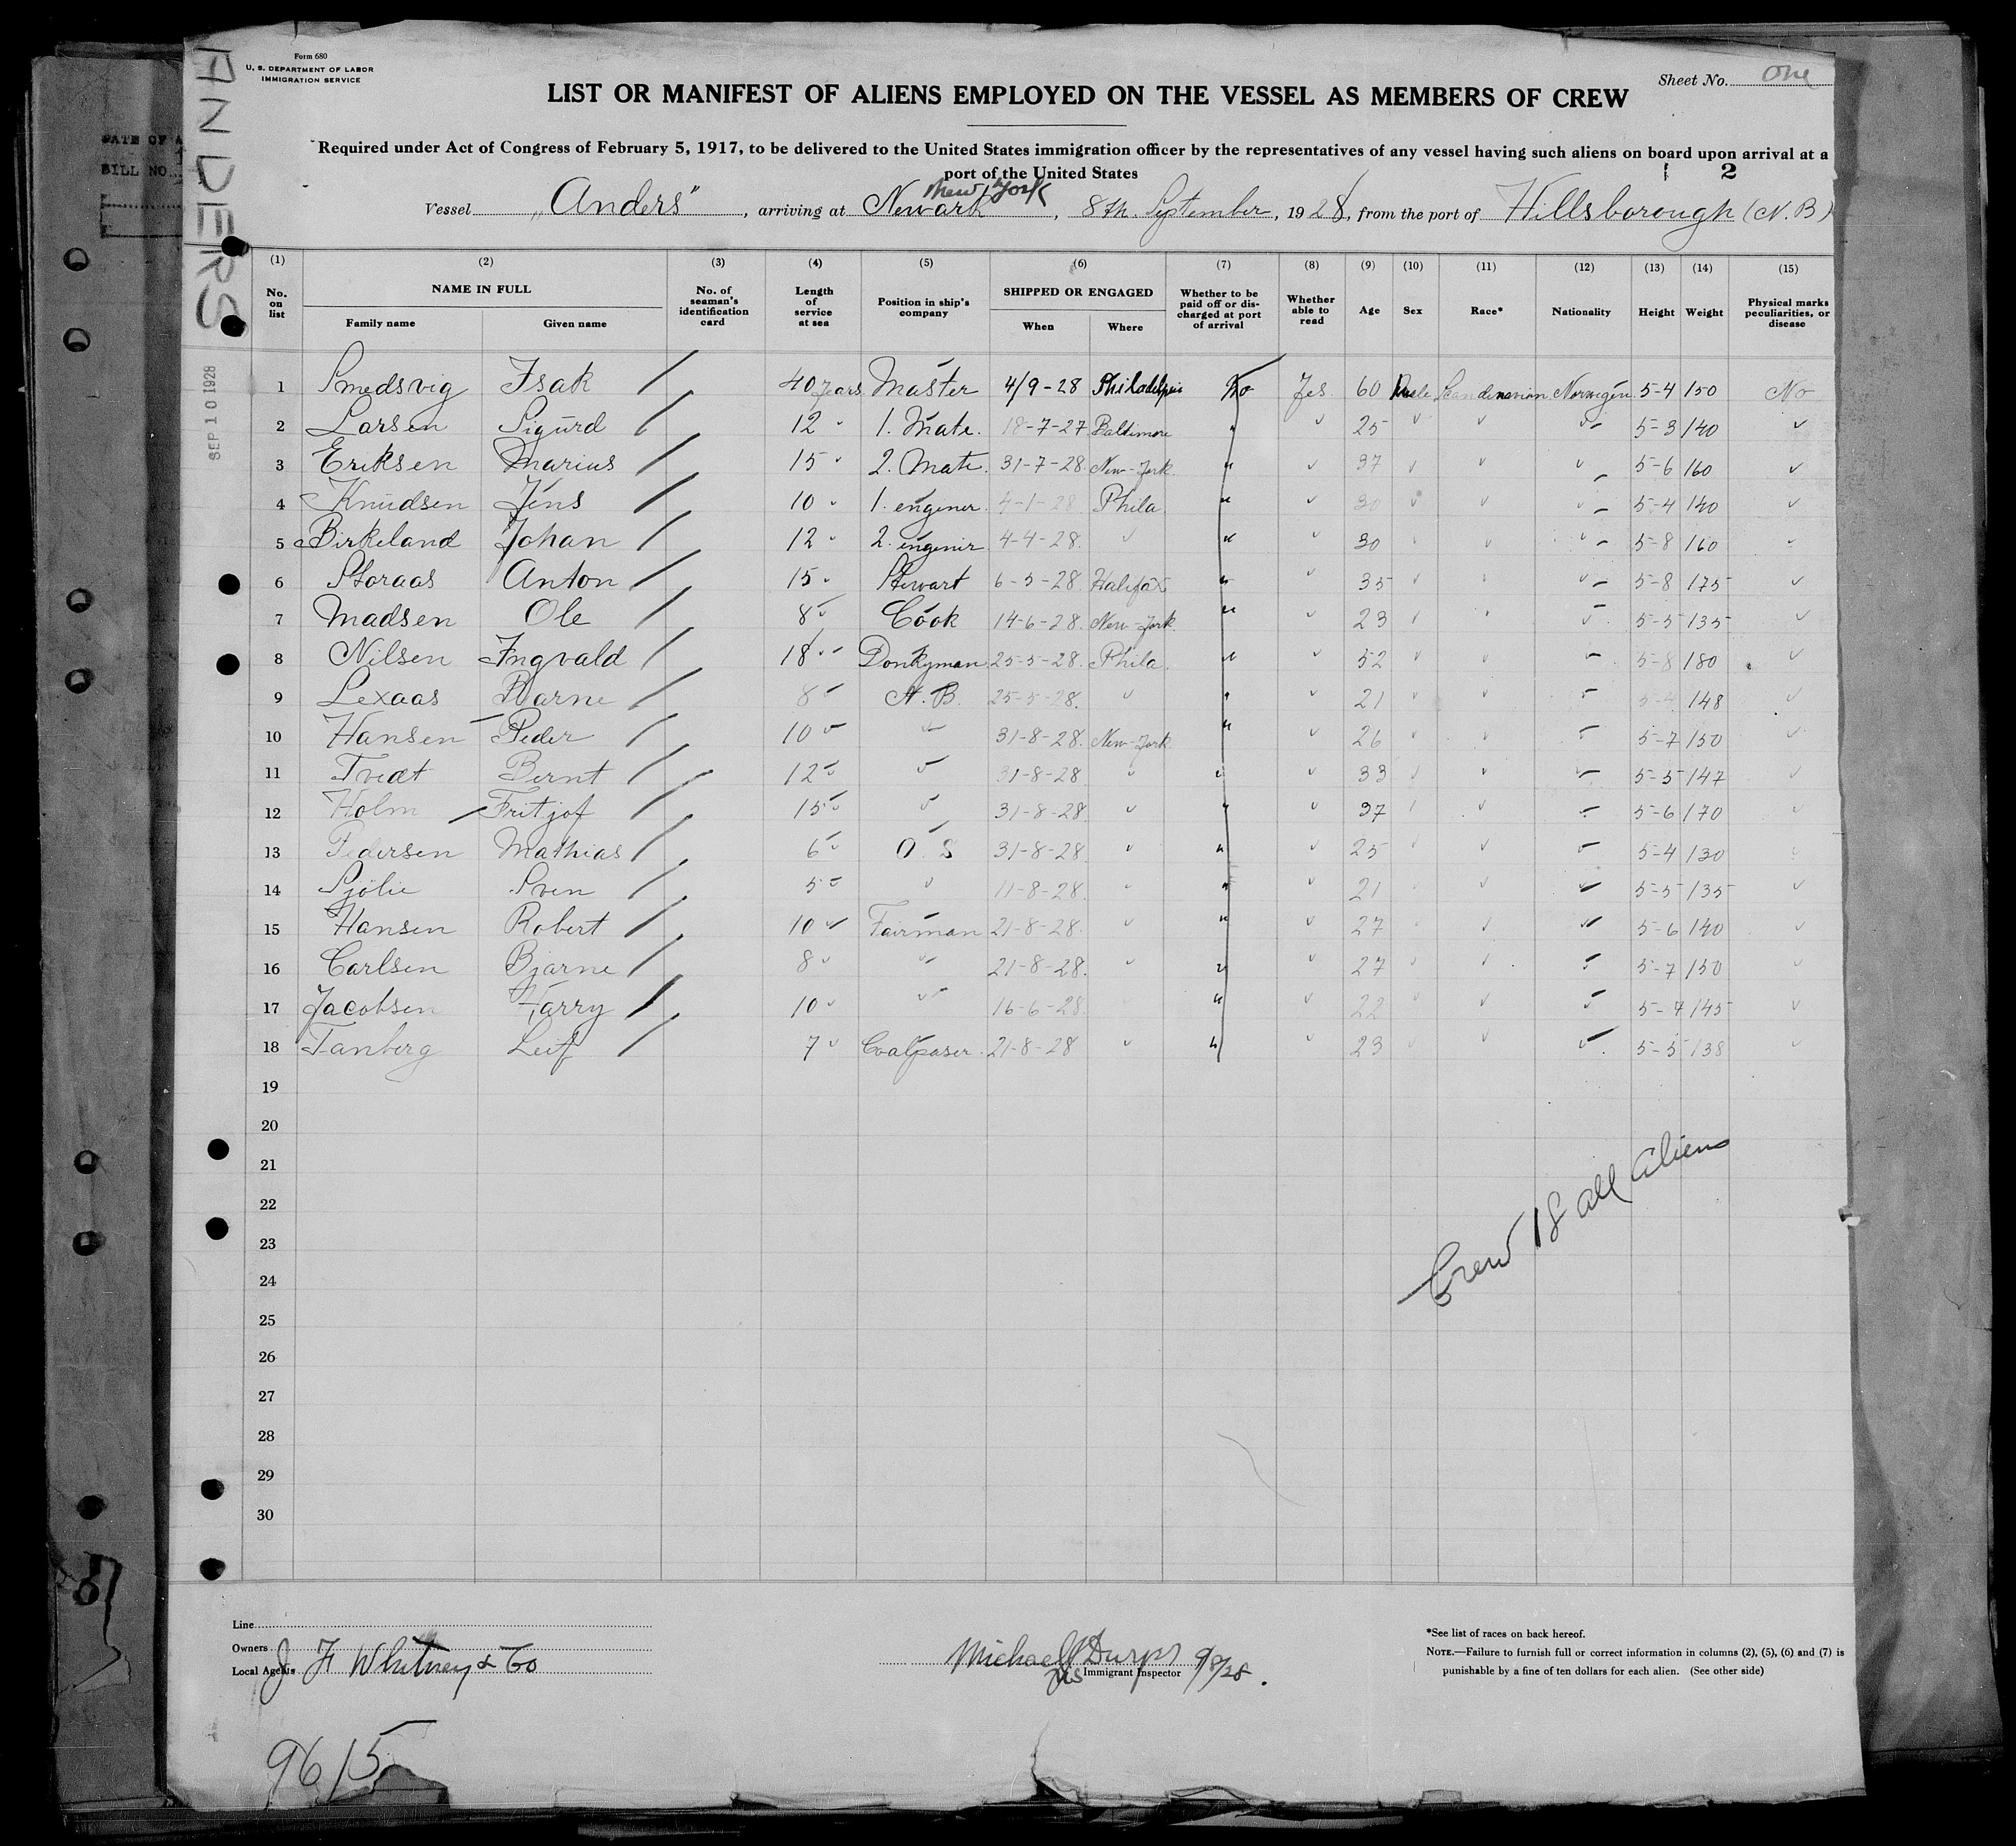 Form 680
U. S. DEPARTMENT OF LABOR
IMMIGRATION SERVICE
Sheet No. One
LIST OR MANIFEST OF ALIENS EMPLOYED ON THE VESSEL AS MEMBERS OF CREW
Required under Act of Congress of February 5, 1917, to be delivered to the United States immigration officer by the representatives of any vessel having such aliens on board upon arrival at a
port of the United States
2
New York
Vessel „Anders", arriving at Newark, 8th. September, 1928, from the port of Hillsborough (N. B)
ANDERS
SEP 10 1928
DATE OF A
BILL NO.
(1) (2) (3) (4) (5) (6) (7) (8) (9) (10) (11) (12) (13) (14) (15)
No. on list NAME IN FULL Family name Given name No. of seaman's identification card Length of service at sea Position in ship's company SHIPPED OR ENGAGED When Where Whether to be paid off or discharged at port of arrival Whether able to read Age Sex Race* Nationality Height Weight Physical marks peculiarities, or disease
1 Smedsvig Isak / 40 years Master 4/9-28 Philadelpia No Yes. 60 Male Scandenavian Norwegen. 5-4 150 No
2 Larsen Sigurd / 12 " 1. Mate. 18-7-27 Baltimore " " 25 " " " 5-3 140 "
3 Eriksen Marius / 15 " 2. Mate. 31-7-28. New-York. " " 37 " " " 5-6 160 "
4 Knudsen Jens / 10 " 1. enginer. 4-1-28 Phila. " " 30 " " " 5-4 140 "
5 Birkeland Johan / 12 " 2. engenir 4-4-28. " " " 30 " " " 5-8 160 "
6 Storaas Anton / 15 " Stewart 6-5-28 Halifax " " 35 " " " 5-8 175 "
7 Madsen Ole / 8 " Cook 14-6-28. New-York. " " 23 " " " 5-5 135 "
8 Nilsen Ingvald / 18 " Donkyman 25-5-28. Phila. " " 52 " " " 5-8 180 "
9 Lexaas Barne / 8 " A. B. 25-5-28. " " " 21 " " " 5-4 148 "
10 Hansen Peder / 10 " " 31-8-28. New-York " " 26 " " " 5-7 150 "
11 Tvedt Bernt / 12 " " 31-8-28 " " " 33 " " " 5-5 147 "
12 Holm Fritjof / 15 " " 31-8-28. " " " 37 " " " 5-6 170 "
13 Pedersen Mathias / 6 " O. S 31-8-28. " " " 25 " " " 5-4 130 "
14 Sjölie Sven / 5 " " 11-8-28. " " " 21 " " " 5-5 135 "
15 Hansen Robert / 10 " Fairman 21-8-28. " " " 27 " " " 5-6 140 "
16 Carlsen Bjarne / 8 " " 21-8-28. " " " 27 " " " 5-7 150 "
17 Jacobsen Harry / 10 " " 16-6-28. " " 22 " " " 5-7 145 "
18 Tanberg Leif / 7 " Coalpaser. 21-8-28 " " " 23 " " " 5-5 138 "
19
20
21
22
23
24
25
26
27
28
29
30
Crew 18 all Aliens
Line
Owners
Local Agents J F Whitney & Co
Michael
Immigrant Inspector 9/8/28.
*See list of races on back hereof.
NOTE.—Failure to furnish full or correct information in columns (2), (5), (6) and (7) is
punishable by a fine of ten dollars for each alien. (See other side)
9615